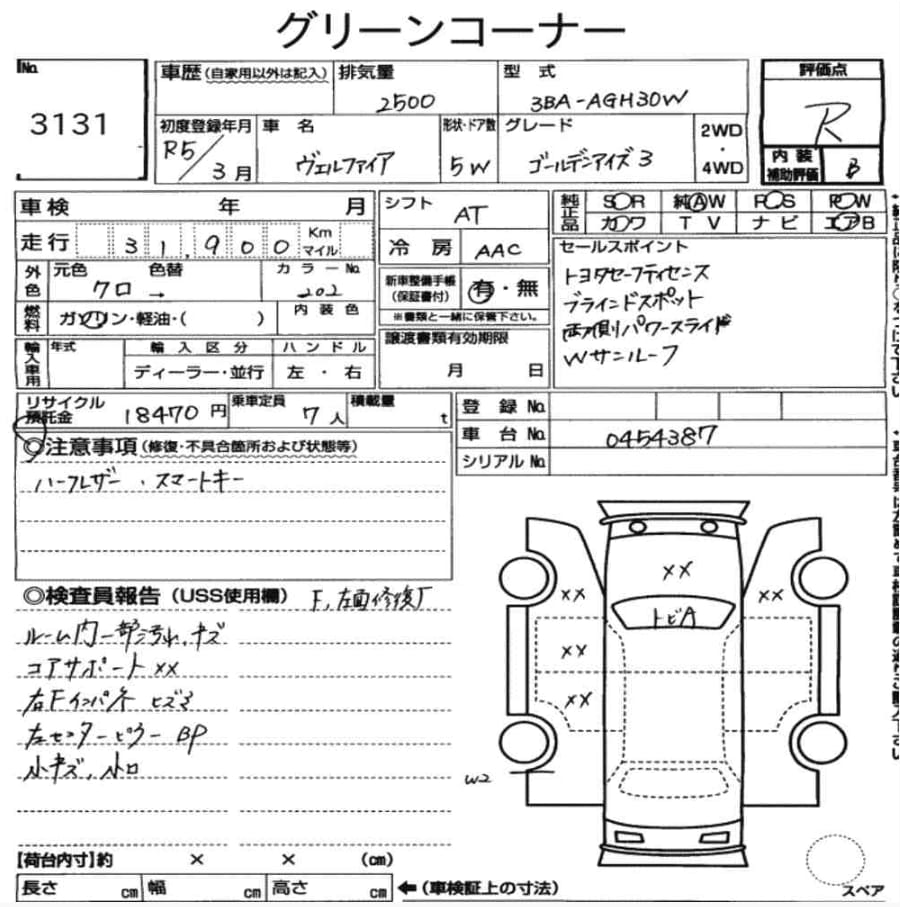 グリーンコーナー
No.
3131
車歴 (自家用以外は記入)
排気量
2500
型式
3BA-AGH30W
評価点
R
内装補助評価
B
初度登録年月
R5/3月
車名
ヴェルファイア
形状・ドア数
5W
グレード
ゴールデンアイズ3
2WD・4WD
車検 年 月
走行 31,900 Km マイル
外色
元色 クロ →
色替
カラーNo. 202
燃料
ガソリン・軽油・( )
内装色
輸入車用
年式
輸入区分
ディーラー・並行
ハンドル
左・右
シフト
AT
冷房
AAC
新車整備手帳(保証書付)
有・無
※書類と一緒に保管下さい。
譲渡書類有効期限
月 日
純正品
S○R 純AW P○S P○W
カワ TV ナビ エアB
セールスポイント
トヨタセーフティセンス
ブラインドスポット
両側パワースライド
Wサンルーフ
リサイクル預託金 18470円
乗車定員 7人
積載量 t
登録No.
車台No. 0454387
シリアルNo.
◎注意事項 (修復・不具合箇所および状態等)
ハーフレザー、スマートキー
◎検査員報告 (USS使用欄) F,左面修復厂
ルーム内一部汚れ,キズ
コアサポートXX
右Fインパネ ヒズミ
左センターピラー BP
小キズ、小凹
XX
トビA
XX
XX
XX
XX
W2
【荷台内寸】約 × × (cm)
長さ cm 幅 cm 高さ cm
←(車検証上の寸法)
スペア